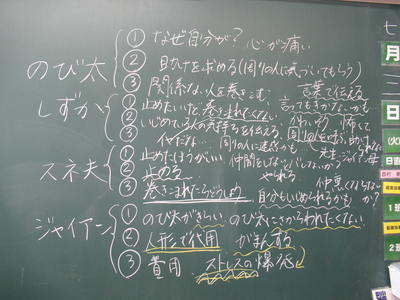 のび太
① なぜ自分が？ 心が痛い
② 助けを求める(周りの人に気づいてもらう)
③ 関係ない人を巻きこむ 言葉で伝える
しずか
① 止めたいけど、巻きこまれたくない 言ってもきかないかも
② いじめている人の気持ちを伝える、
③ 周りの人に迷惑かも
先生、ジャイアン母
スネ夫
① 止めたほうがいい
② 止める やられる
③ 巻きこまれたらどうしよう 自分もいじめられるかも
仲悪くならないか？
ジャイアン
① のび太がきらい のび太にきらわれたくない
② 人形で代用 がまんする
③ 費用 ストレスの爆発
七
月
日
日直
日直
1班
2班